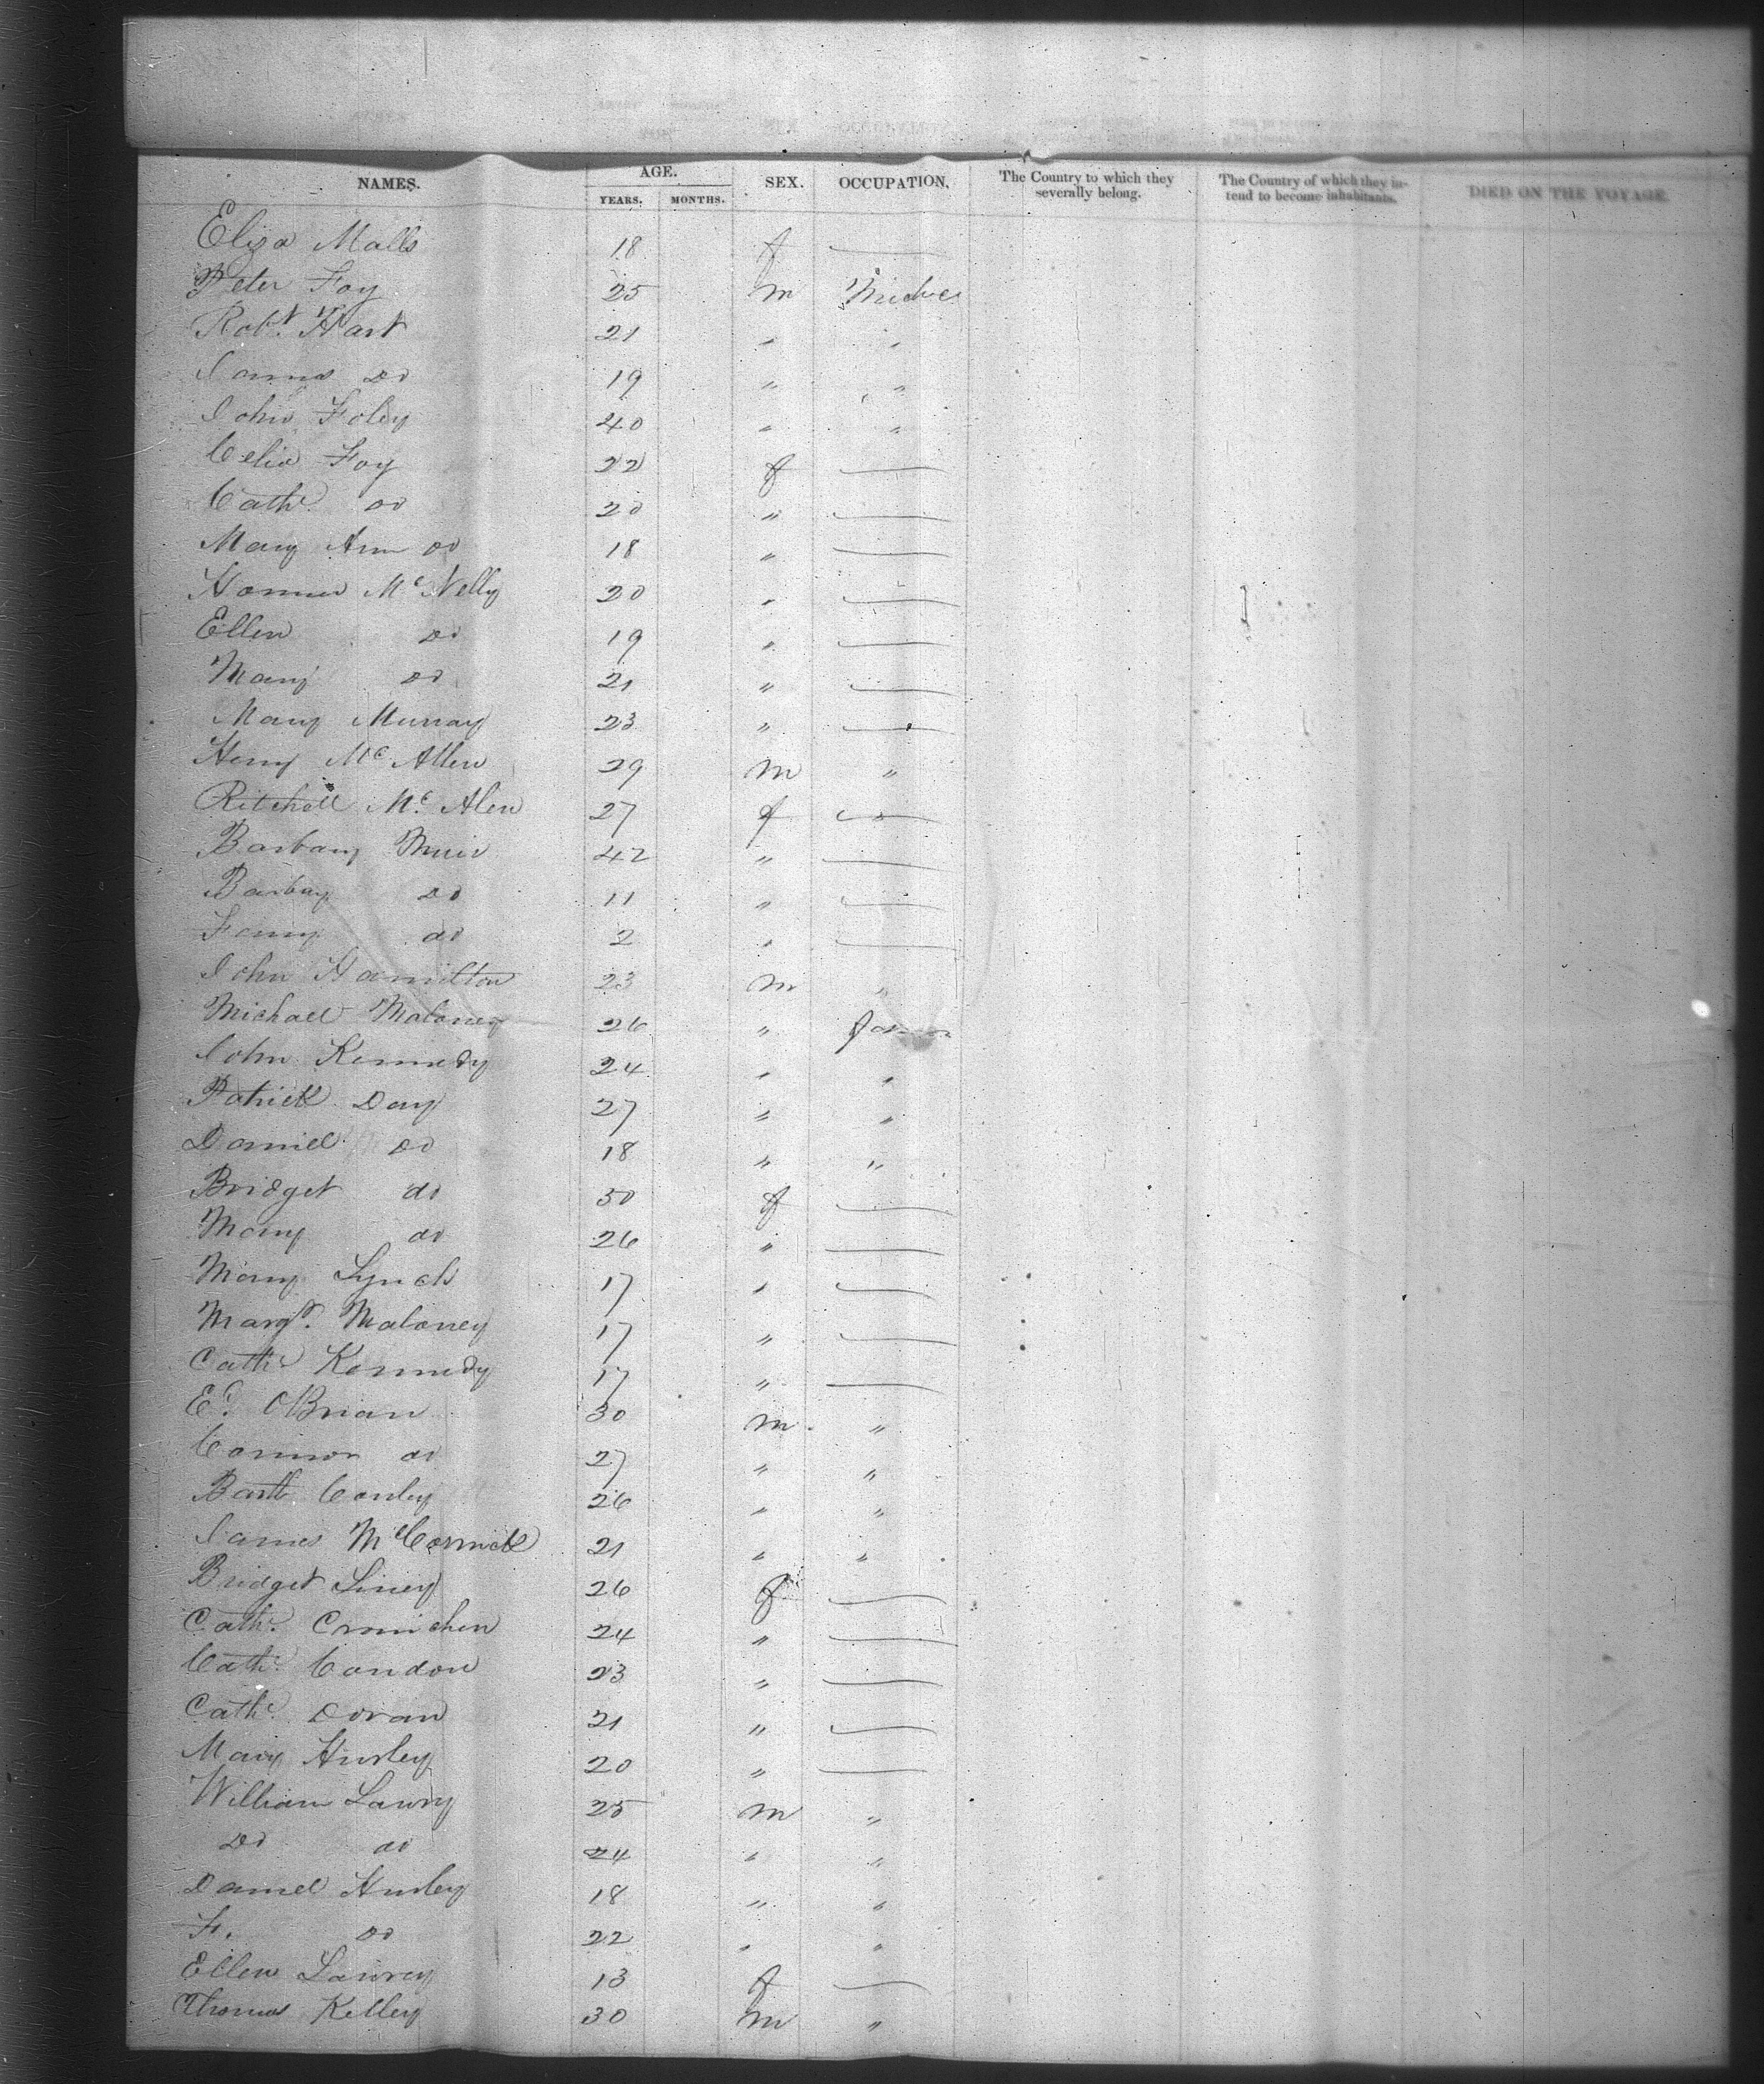 NAMES. AGE. SEX. OCCUPATION. The Country to which they severally belong. The Country of which they intend to become inhabitants. DIED ON THE VOYAGE.
YEARS. MONTHS.
Eliza Malls 18 f
Peter Foy 25 m
Robt. Hart 21 " "
James Do 19 " "
John Foley 40 " "
Celia Foy 22 f
Cathe. do 20 "
Mary Ann do 18 "
McNelly 20 "
Ellen Do 19 "
Mary do 21 "
Mary Murray 23 "
Henry McAllen 29 m "
Ritchall Mc. Alen 27 f
Barbary Muir 42 "
Barbary Do 11 "
Fanny do 2 "
John Hamilton 23 m "
Michael Maloney 26 " farmer
John Kennedy 24 " "
Patrick Day 27 " "
Daniel Do 18 " "
Bridget do 30 f
Mary do 26 "
Mary Lynch 17 "
Margt. Maloney 17 "
Cathe. Kennedy 17 "
Ed. OBrian 30 m "
Connor do 27 " "
Barth Conley 26 " "
James McCormick 21 " "
Bridget Liney 26 f
Cathe. 24 "
Cathe. Condon 23 "
Cathe. Doran 21 "
Mary Hurley 20 "
William Lawry 25 m "
Do do 24 " "
Daniel Hurley 18 " "
F. Do 22 " "
Ellen Lawrey 13 f
Thomas Kelley 30 m "